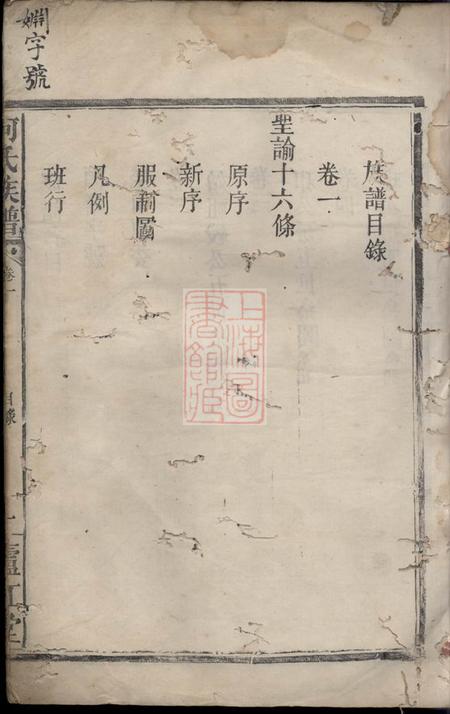 字號
族譜目錄
卷一
聖諭十六條
原序
新序
服制圖
凡例
班行
上海圖
書館藏
何氏族譜
卷一
目錄
一
廬江堂